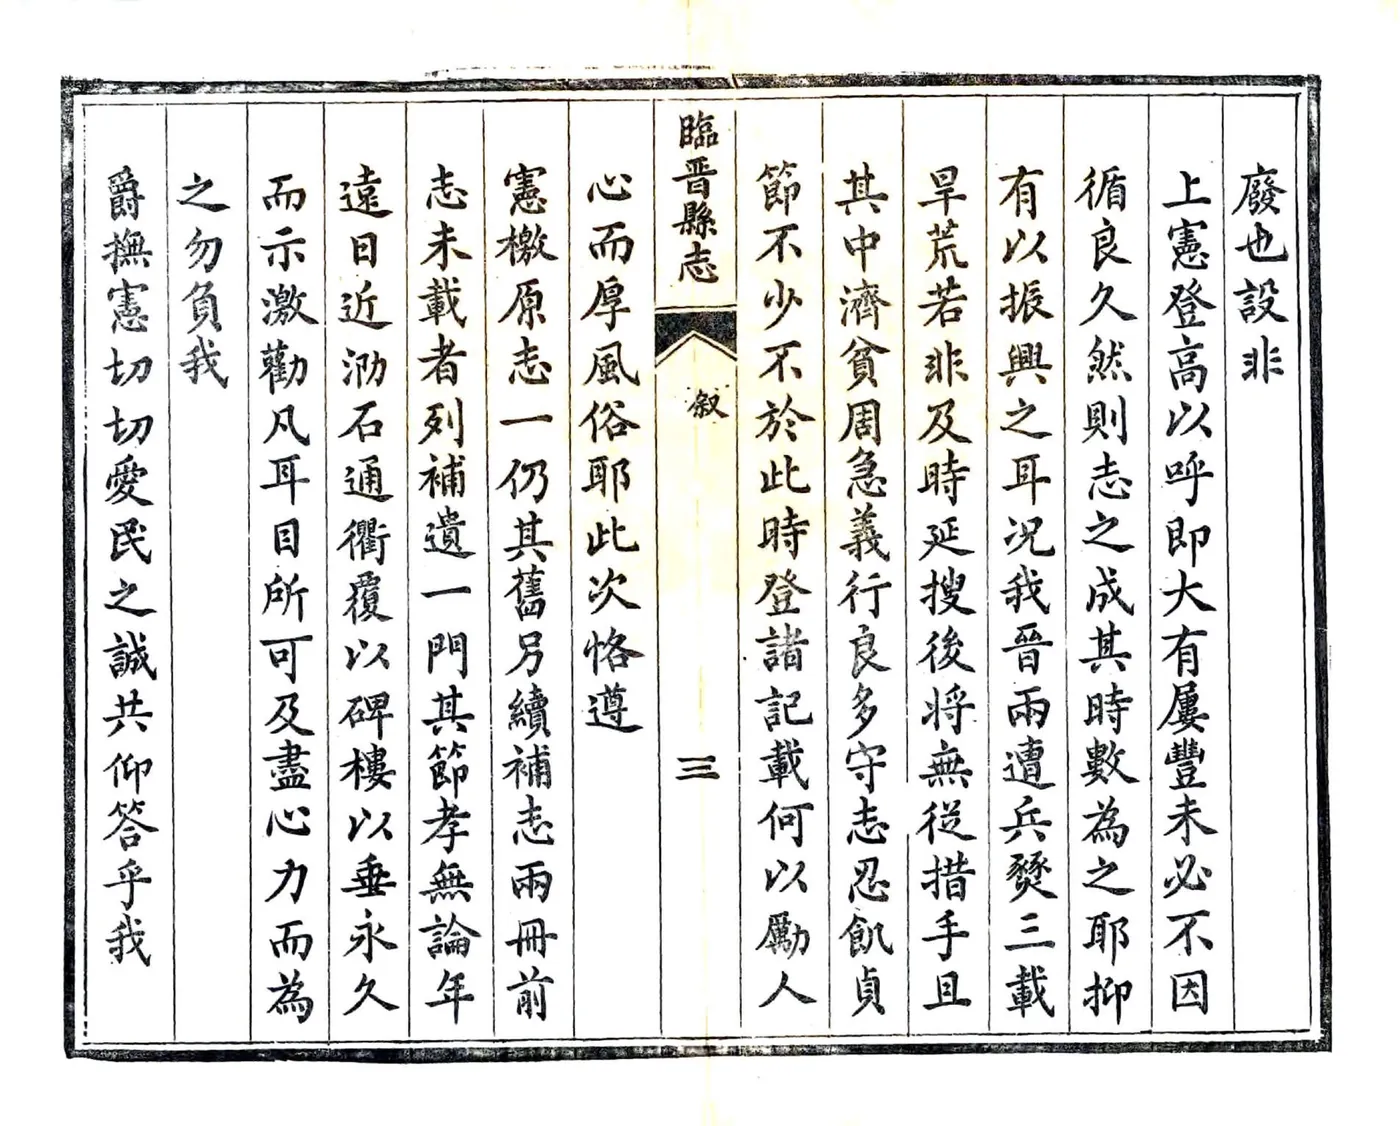 廢也設非
上憲登高以呼即大有屢豐未必不因
循良久然則志之成其時數為之耶抑
有以振興之耳况我晉兩遭兵燹三載
旱荒若非及時延搜後將無從措手且
其中濟貧周急義行良多守志忍飢貞
節不少不於此時登諸記載何以勵人
臨晉縣志
敘
三
心而厚風俗耶此次恪遵
憲檄原志一仍其舊另續補志兩冊前
志未載者列補遺一門其節孝無論年
遠日近泐石通衢覆以碑樓以垂永久
而示激勸凡耳目所可及盡心力而為
之勿負我
爵撫憲切切愛民之誠共仰答乎我